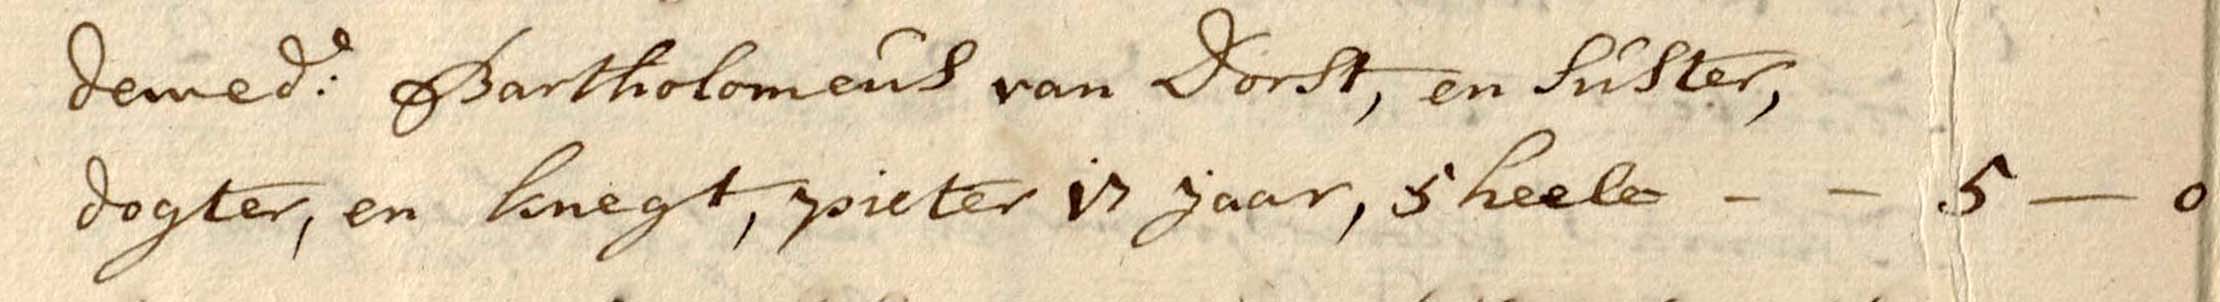 de wed:e Bartholomeus van Dorst, en suster,
dogter, en knegt, pieter 17 jaar, 5 heele - - 5 — 0